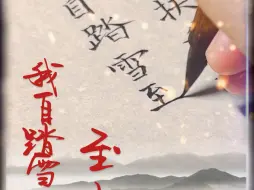 扶
自踏雪至
我自踏雪
至